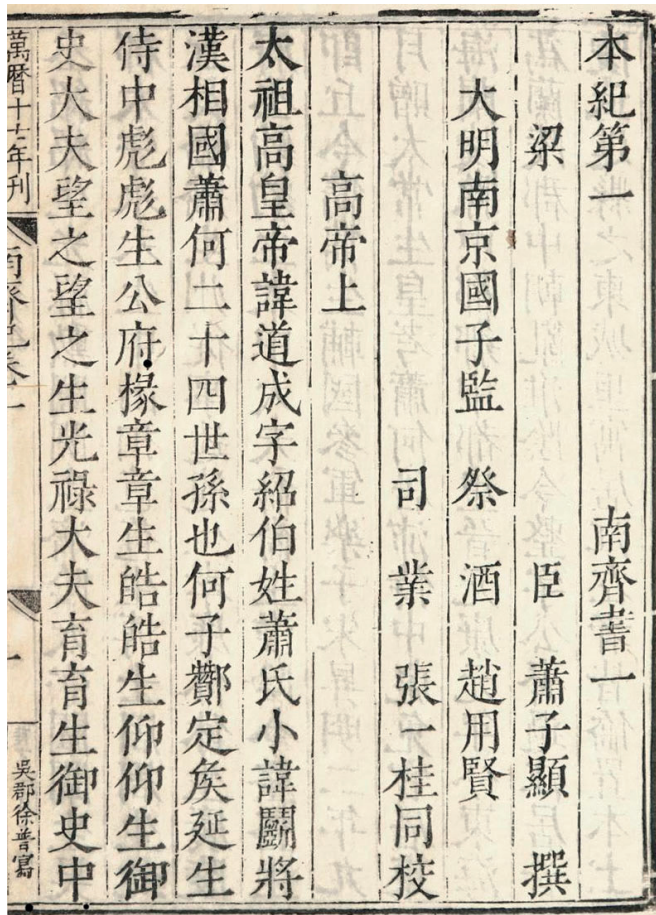 本紀第一 南齊書一
梁 臣 蕭子顯 撰
大明南京國子監 祭 酒 趙用賢
司 業 張一桂同校
高帝上
太祖高皇帝諱道成字紹伯姓蕭氏小諱鬭將
漢相國蕭何二十四世孫也何子酇定矦延生
侍中彪彪生公府掾章章生皓皓生仰仰生御
史大夫望之望之生光祿大夫育育生御史中
萬曆十七年刊
一
吳郡徐普寫